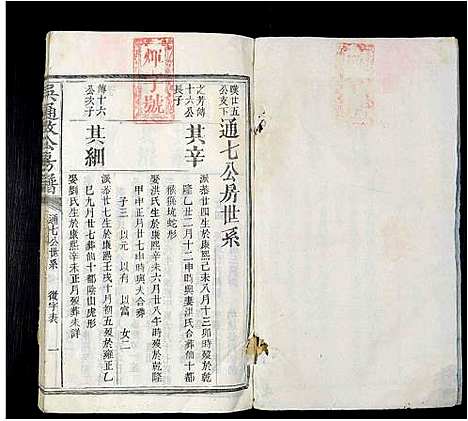 輝了號
璞廿五
公支下
通七公房世系
之芳傅
十六公
長子
其辛
派恭廿四生於康熙己未八月十三卯時歿於乾
隆乙丑二月十二申時與妻洪氏合葬仙十都
猴猻坑蛇形
娶洪氏生於康熙辛未六月廿八午時歿於乾隆
甲申正月廿七申時與夫合葬
子三 以元 以有 以富 女二
傅十六
公次子
其細
派恭廿七生於康熙壬戌十月初五歿於雍正乙
巳九月廿七葬仙十都除山虎形
娶劉氏生於康熙辛未正月歿葬未詳
吳通敏公房譜
通七公世系
復字表
一